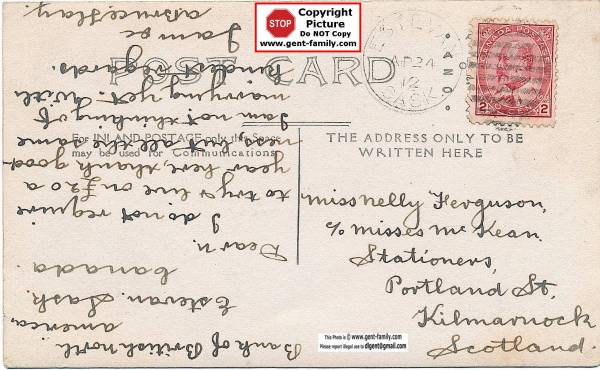 STOP
Copyright
Picture
Do NOT Copy
www.gent-family.com
POST CARD
AP 24
12
SASK
CANADA POSTAGE
2 2
For INLAND POSTAGE only this Space
may be used for Communications
THE ADDRESS ONLY TO BE
WRITTEN HERE
Bank of British north
america,
Estevan. Sask.
Canada.
Dear n.
I do not require
to try & live on £20 a
year here, thank good-
ness but all the same
I am not thinking of
marrying yet. With
kindest regards.
I am sc
Bruce Hay.
Miss nelly Ferguson,
c/o misses Mc Kean.
Stationers,
Portland St,
Kilmarnock
Scotland.
This Photo is © www.gent-family.com
Please report illegal use to digent@gmail.com